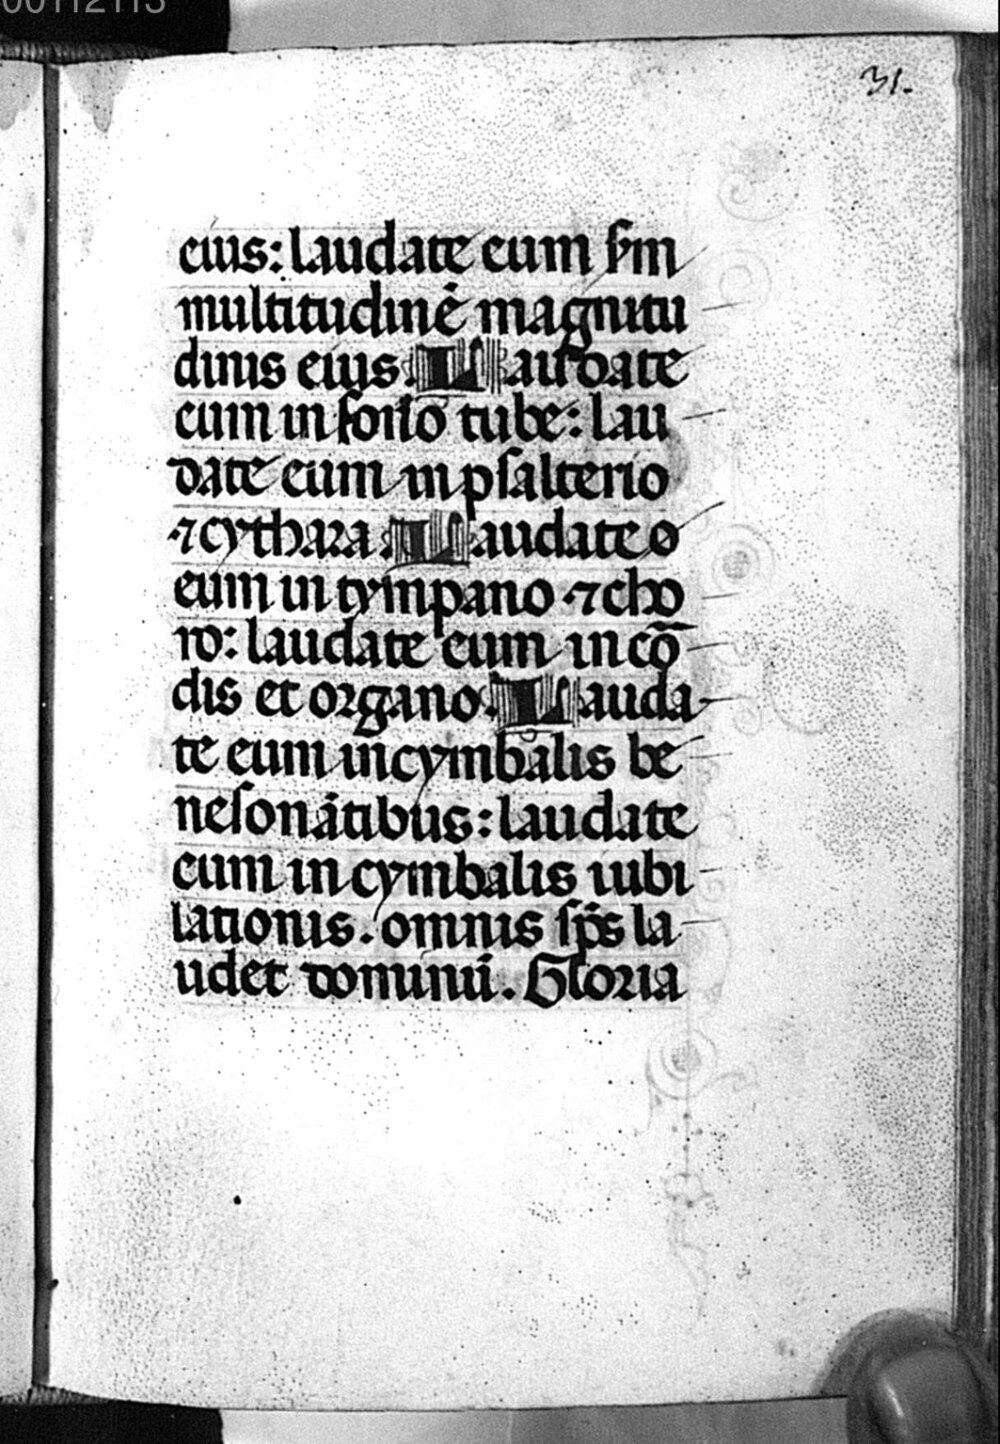 00112113
31.
eius: laudate eum sm
multitudinē magnitu
dinis eius. Laudate
eum in sono tube: lau
date eum in psalterio
⁊ cythara. Laudate
eum in tympano ⁊ cho
ro: laudate eum in cō
dis et organo. Lauda
te eum in cymbalis be
nesonātibus: laudate
eum in cymbalis iubi
lationis. omnis sp̄s la
udet dominū. Gloria